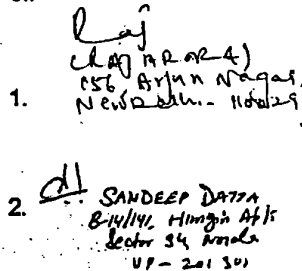 Raj
(RAJ ARORA)
156 Arjun Nagar,
1. New Delhi - 110029
2. SANDEEP DATTA
B-14/141, Himgiri Apts
Sector 34 Noida
UP - 201 301